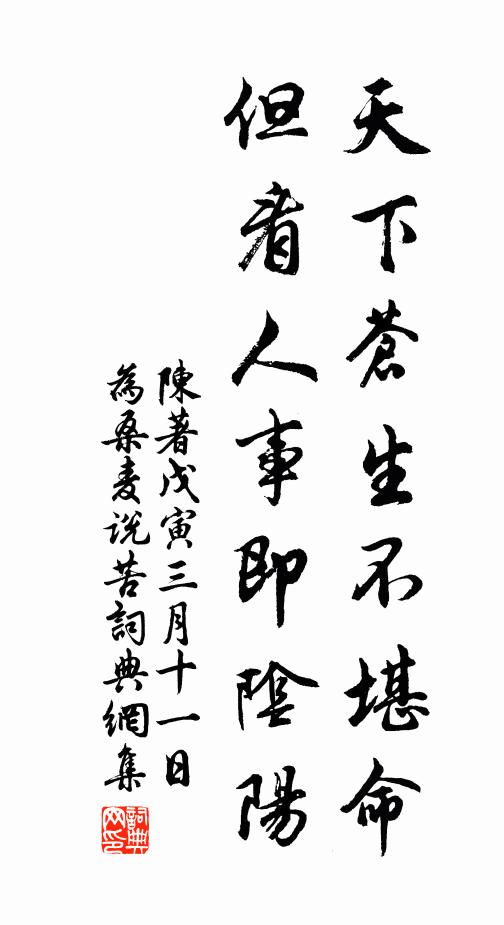 天下蒼生不堪命
但看人事即陰陽
陳著戊寅三月十一日
為桑麦说苦詞典網集
詞典
网印